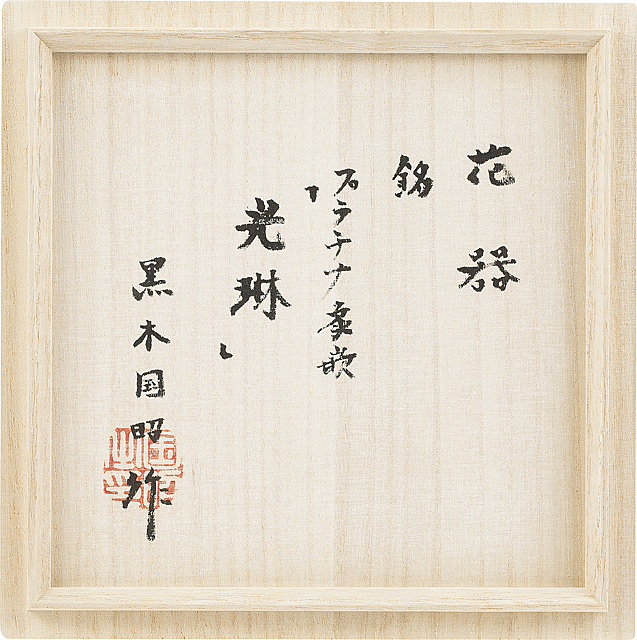 花器
銘
プラチナ象嵌
「光琳」
黒木国昭作